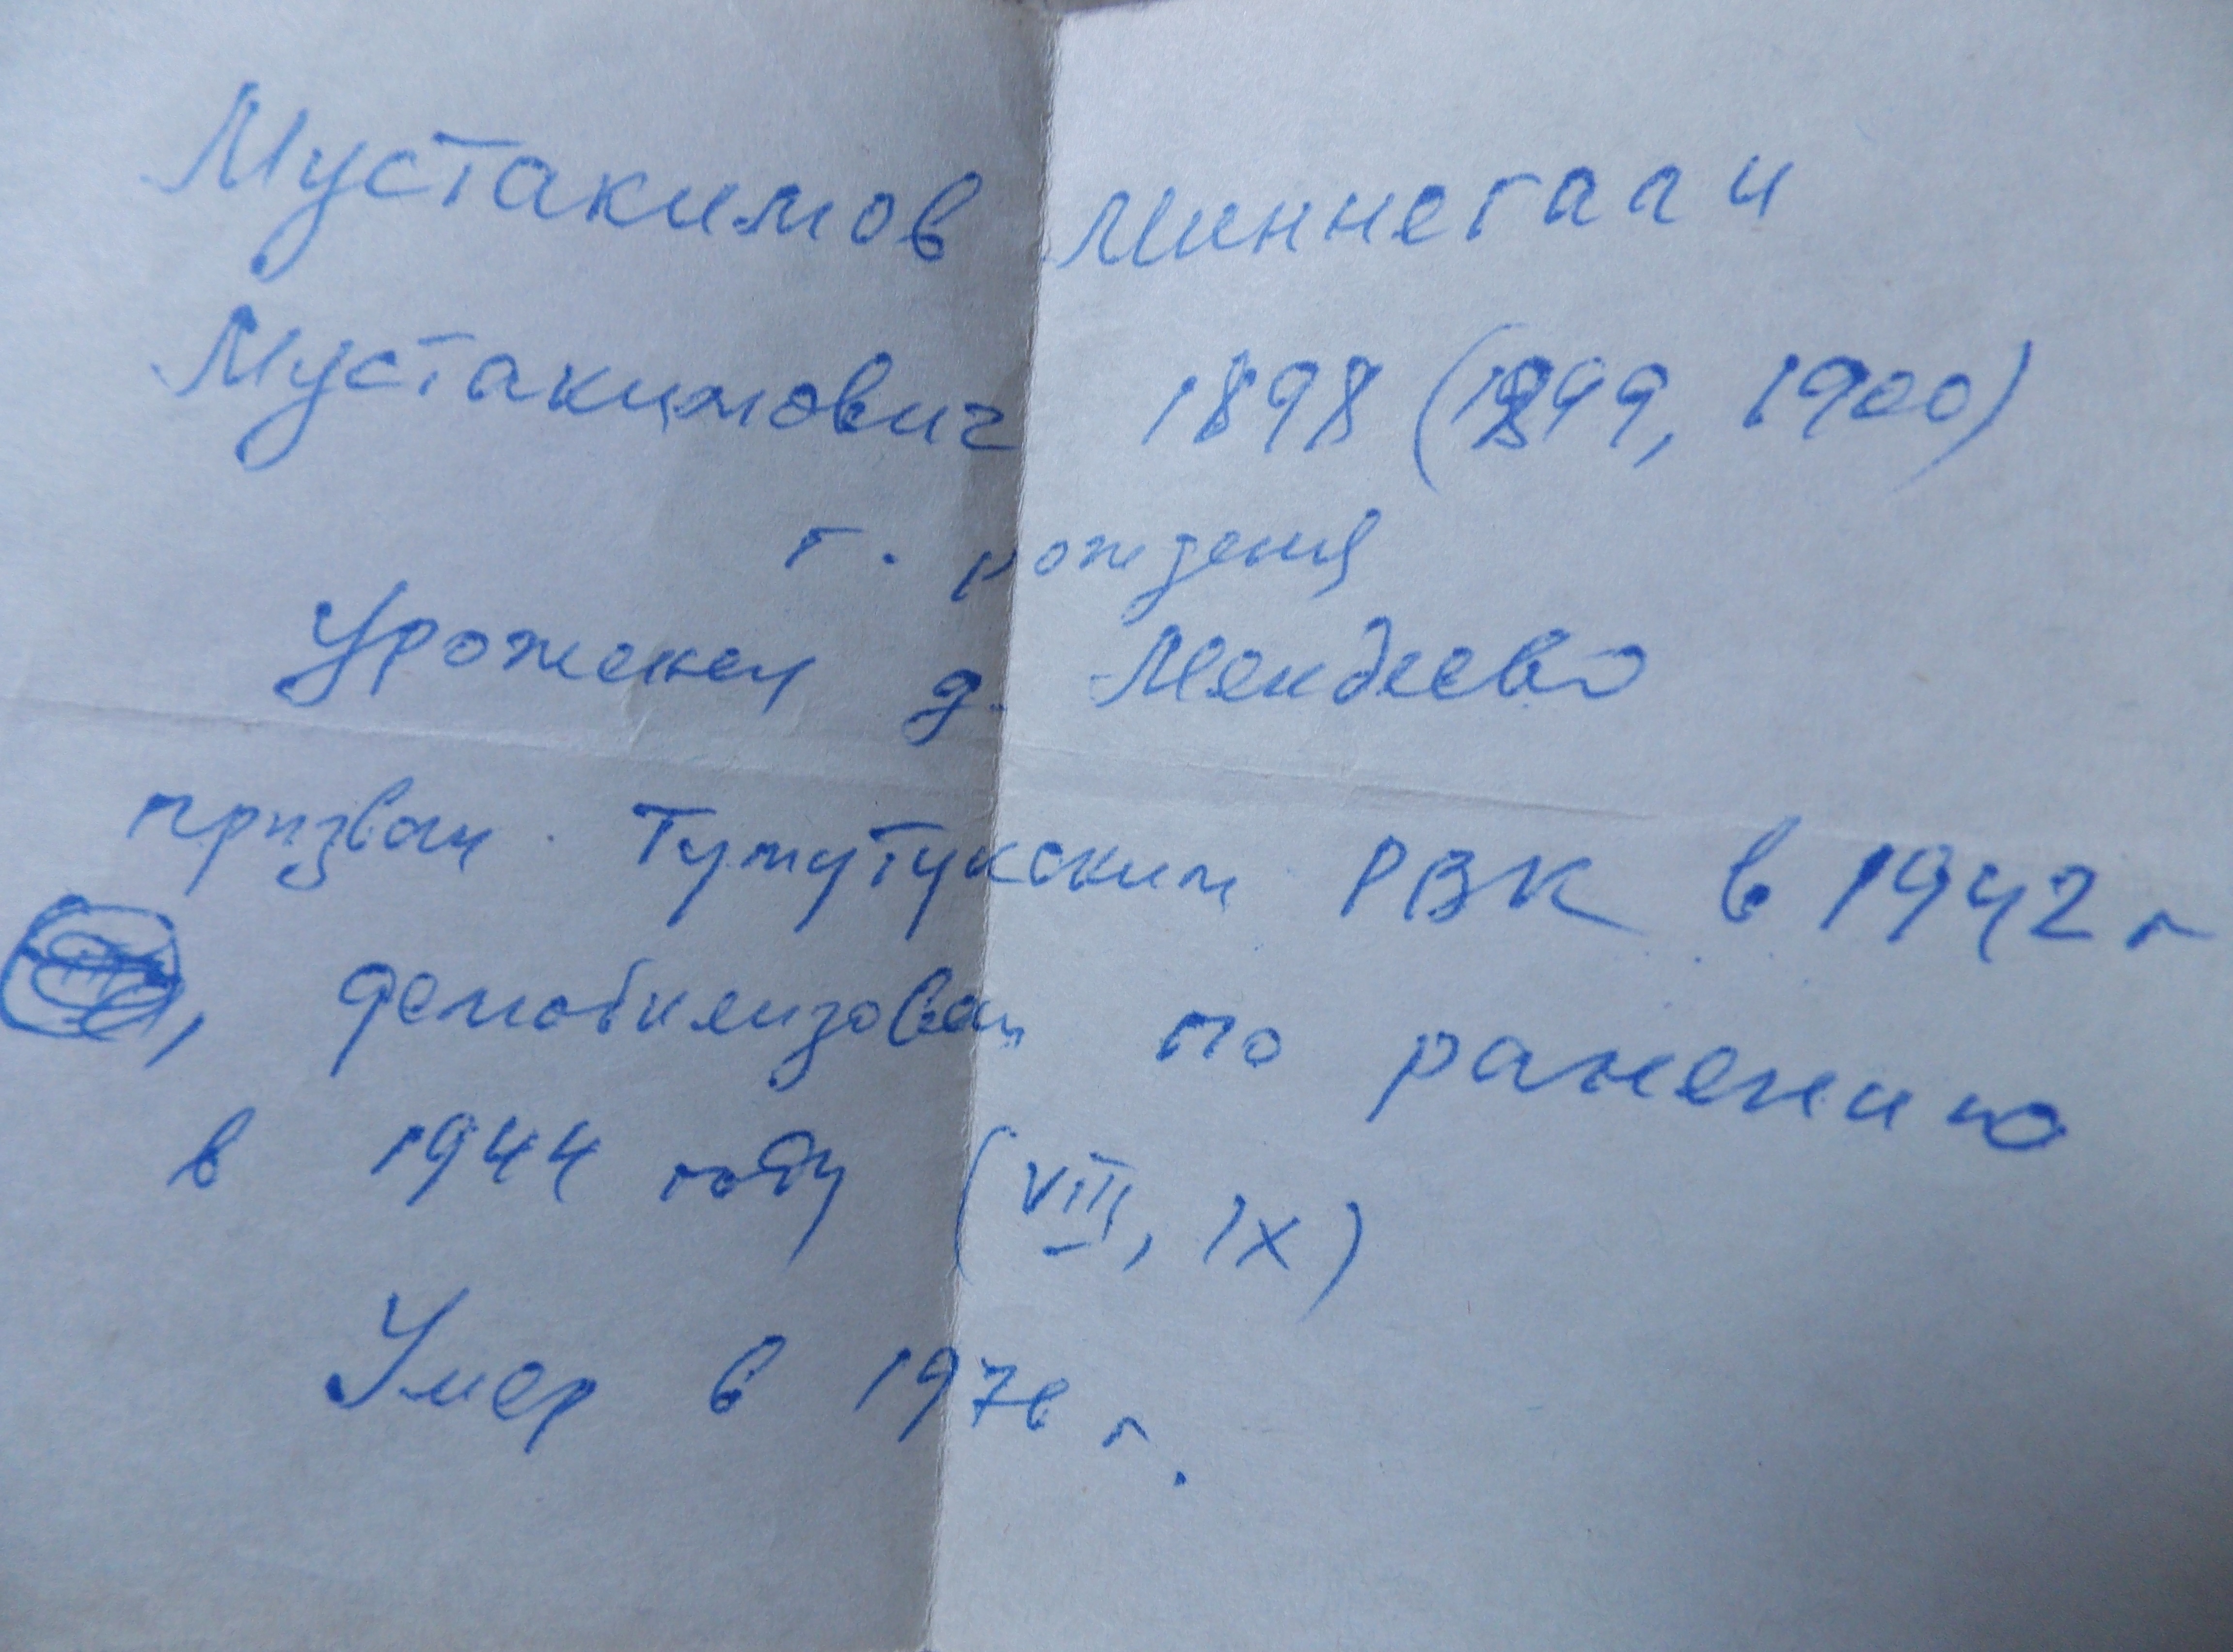 Мустакимов Миннегали
Мустакимович 1898 (1899, 1900)
г. рождения
Уроженец д. Мендеево
призван Тумутукским РВК в 1942 г
, демобилизован по ранению
в 1944 году (VIII, IX)
Умер в 1976 г.